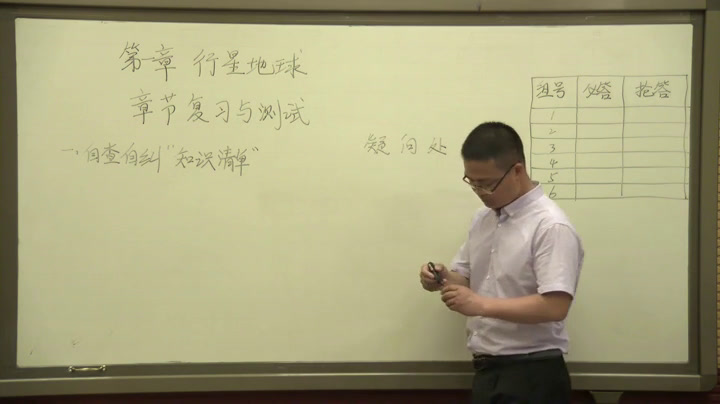 第一章 行星地球
章节复习与测试
一、自查自纠"知识清单"
疑问处
组号 必答 抢答
1
2
3
4
5
6